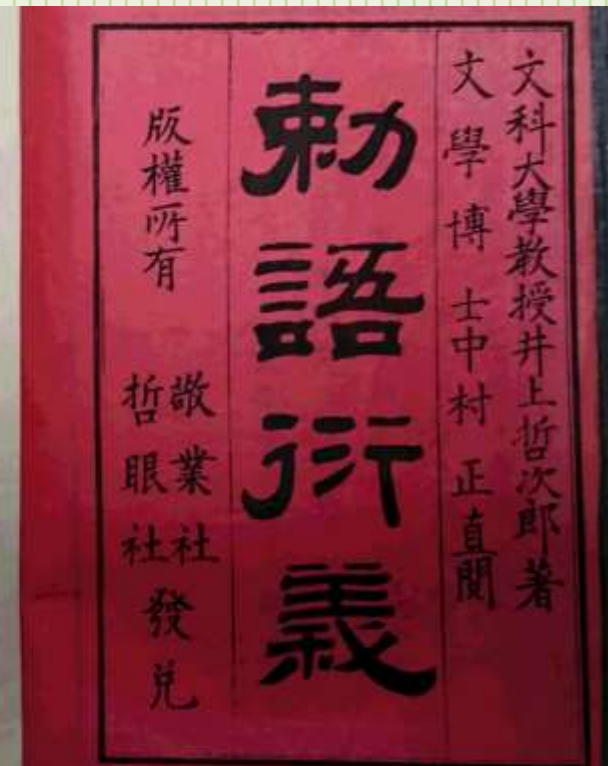 文科大學教授井上哲次郎著
文學博士中村正直閱
勅語衍義
版權所有
敬業社
哲眼社
發兌